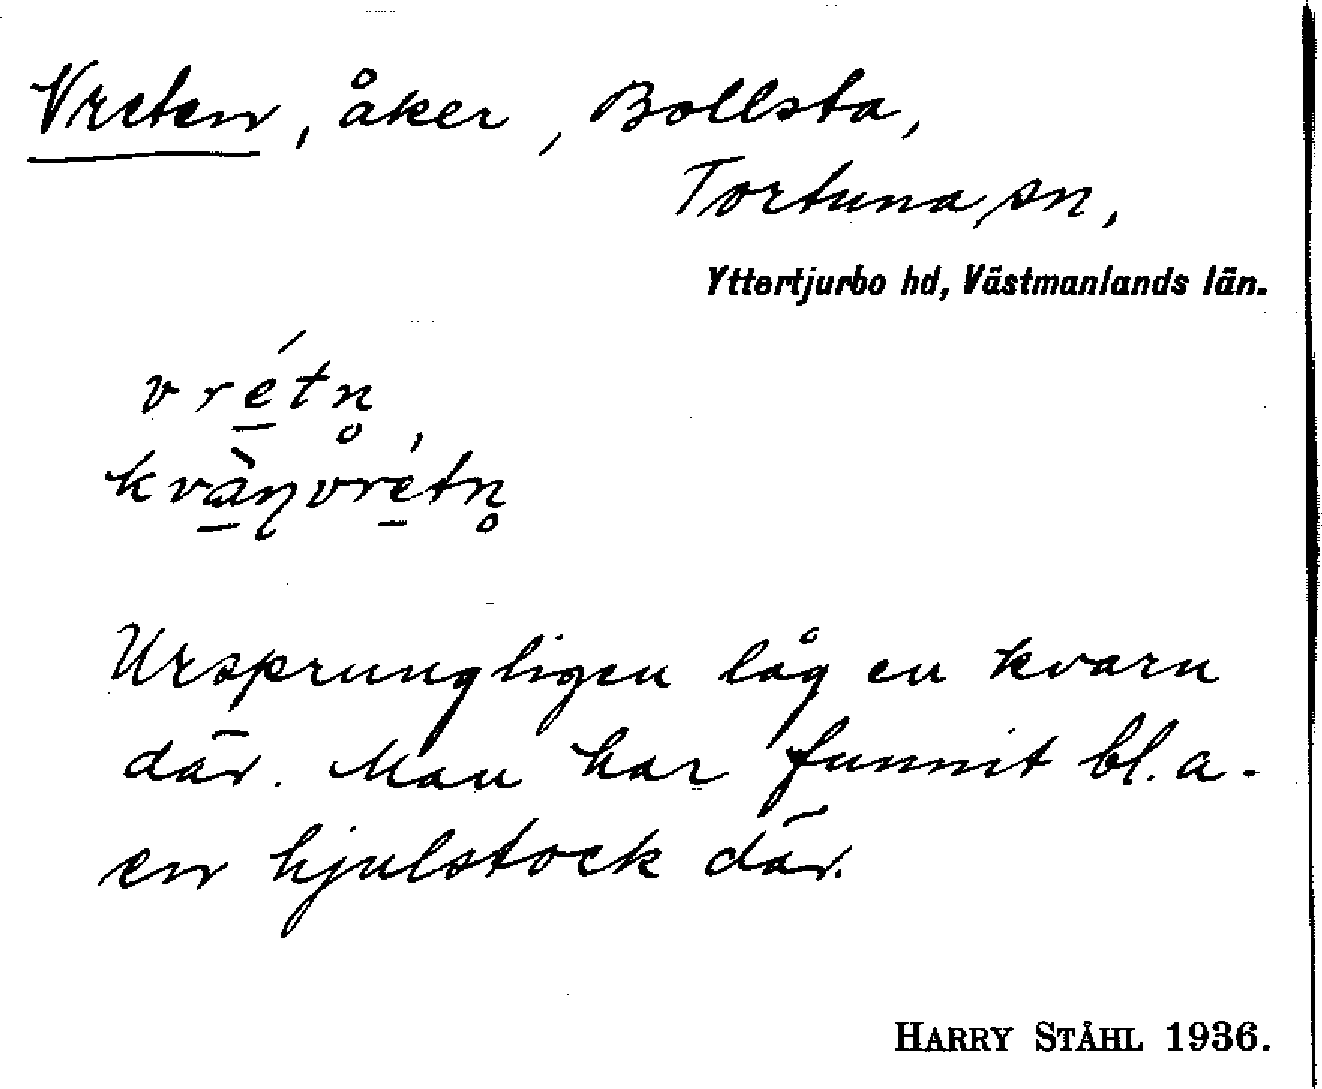 Vreten, åker, Bollsta,
Tortuna sn,
Yttertjurbo hd, Västmanlands län.
vré̲tn̥,
kvà̲ɳvré̲tn̥
Ursprungligen låg en kvarn
där. Man har funnit bl.a.
en hjulstock där.
HARRY STÅHL 1936.